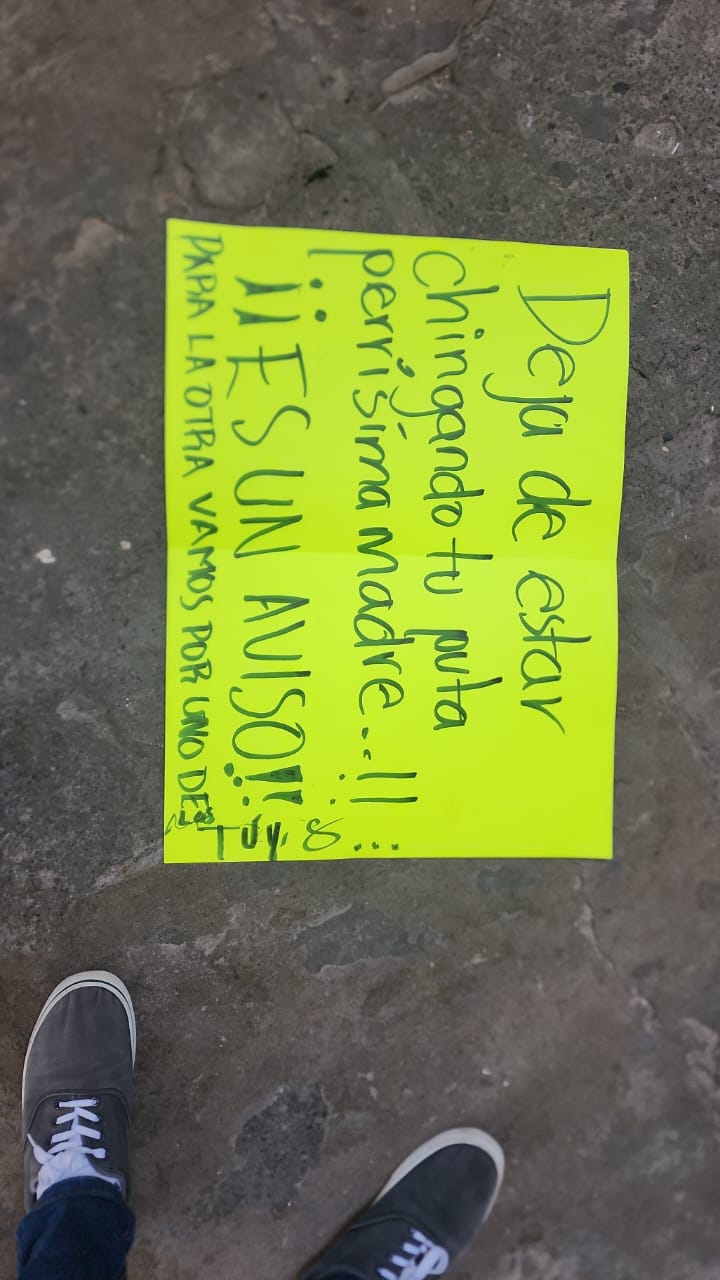 Deja de estar
chingando tu puta
perrísima madre..!!
¡¡ES UN AVISO!!
PARA LA OTRA VAMOS POR UNO DE LOS
TUYOS...